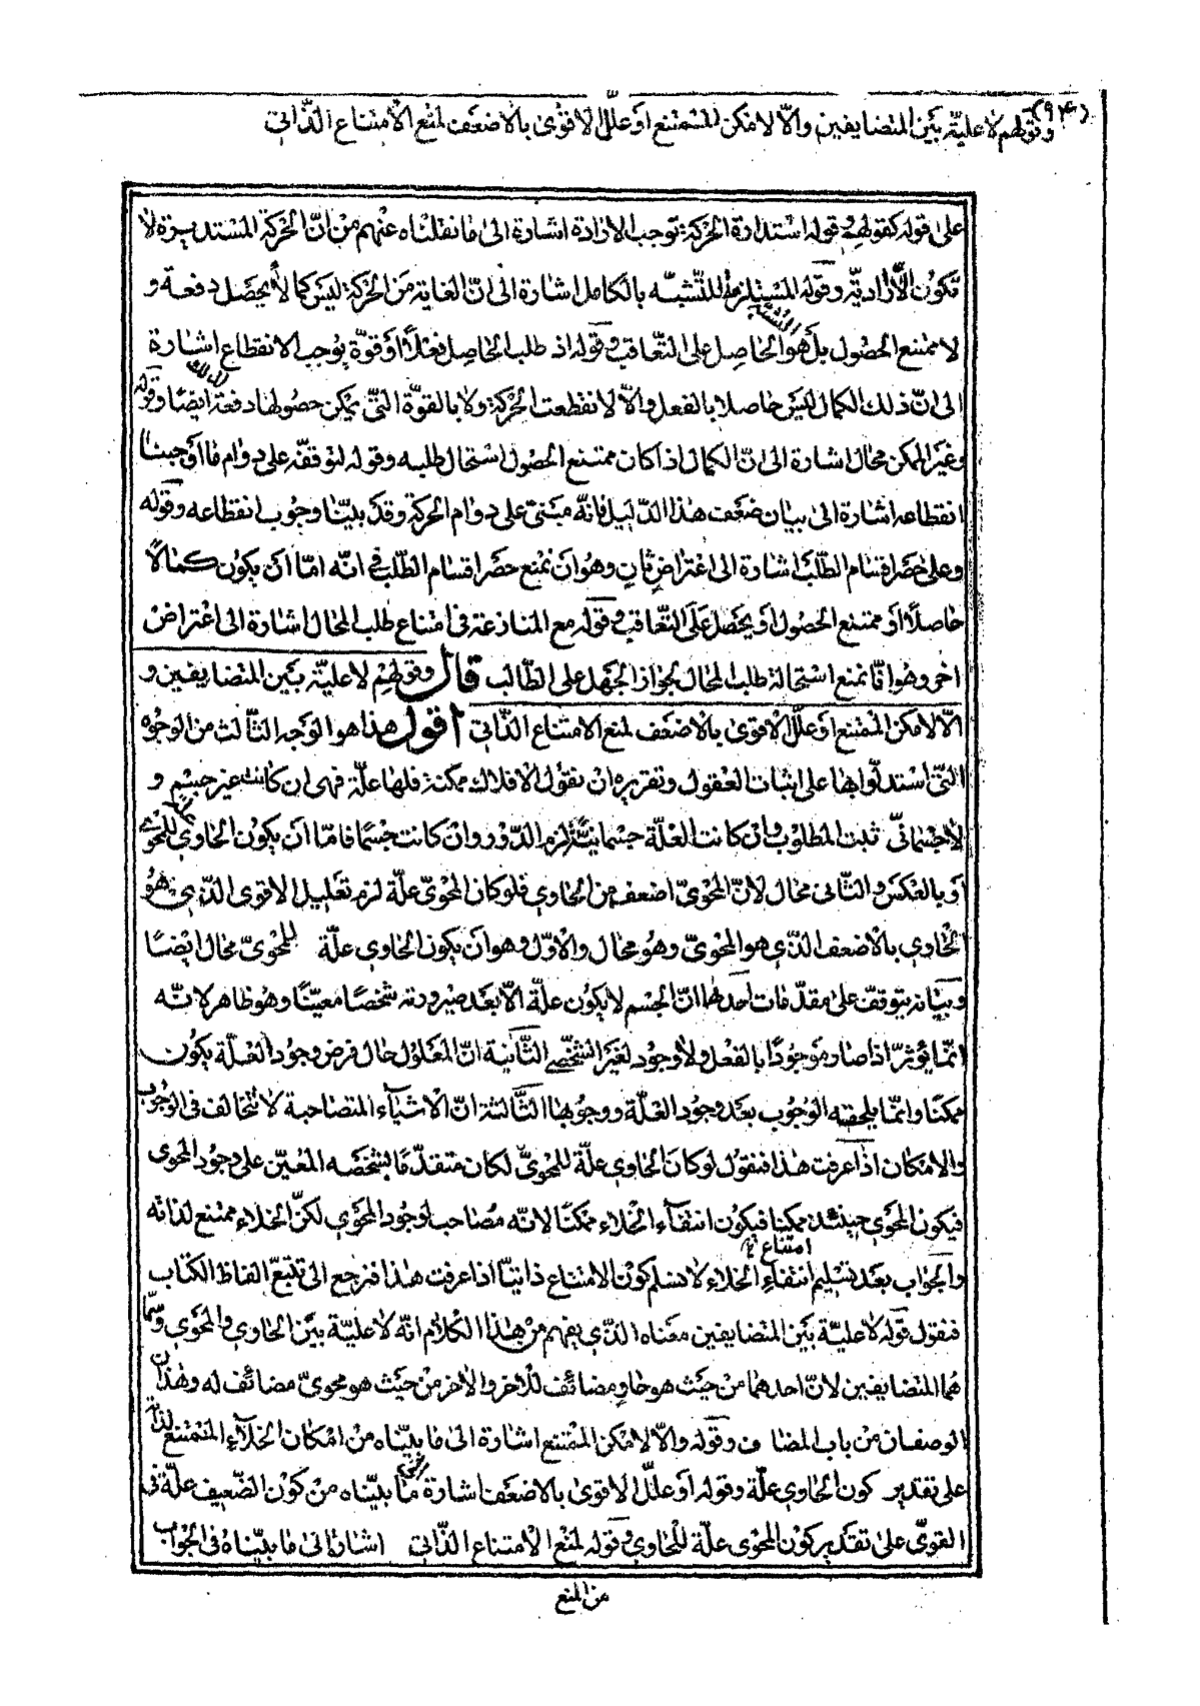 (٩٤)
وقولهم لا علية بين المتضايفين والا لامكن الممتنع او علل الاقوى بالاضعف لمنع الامتناع الذاتي
على قوله كقولهم وقوله استدارة الحركة توجب الارادة اشارة الى ما نقلناه عنهم من ان الحركة المستديرة لا
تكون الا ارادية وقوله المستلزمة للتشبه بالكامل اشارة الى ان الغاية من الحركة ليس كمالا يحصل دفعة و
لا ممتنع الحصول بل هو التشبه الحاصل على التعاقب وقوله اذ طلب الحاصل فعلا او قوة يوجب الانقطاع اشارة
الى ان ذلك الكمال ليس حاصلا بالفعل والا لانقطعت الحركة ولا بالقوة التي يمكن حصولها دفعة لذلك ايضا وقوله
وغير الممكن محال اشارة الى ان الكمال اذا كان ممتنع الحصول استحال طلبه وقوله لتوقفه على دوام ما اوجبنا
انقطاعه اشارة الى بيان ضعف هذا الدليل فانه مبني على دوام الحركة وقد بينا وجوب انقطاعه وقوله
وعلى حصر اقسام الطلب اشارة الى اعتراض ثان وهو ان نمنع حصر اقسام الطلب في انه اما ان يكون كمالا
حاصلا او ممتنع الحصول او يحصل على التعاقب وقوله مع المنازعة في امتناع طلب المحال اشارة الى اعتراض
اخر وهو انا نمنع استحالة طلب المحال لجواز الجهل على الطالب قال وقولهم لا علية بين المتضايفين و
الا لامكن الممتنع او علل الاقوى بالاضعف لمنع الامتناع الذاتي اقول هذا هو الوجه الثالث من الوجوه
التي استدلوا بها على اثبات العقول وتقريره ان نقول الافلاك ممكنة فلها علة فهي ان كانت غير جسم و
لا جسماني ثبت المطلوب وان كانت العلة جسمانية لزم الدور وان كانت جسما فاما ان يكون الحاوي علة للمحوي
او بالعكس والثاني محال لان المحوي اضعف من الحاوي فلو كان المحوي علة لزم تعليل الاقوى الذي هو
الحاوي بالاضعف الذي هو المحوي وهو محال والاول وهو ان يكون الحاوي علة للمحوي محال ايضا
وبيانه يتوقف على مقدمات احدها ان الجسم لا يكون علة الا بعد صيرورته شخصا معينا وهو ظاهر لانه
انما يؤثر اذا صار موجودا بالفعل ولا وجود لغير الشخصي الثانية ان المعلول حال فرض وجود العلة يكون
ممكنا وانما يلحقه الوجوب بعد وجود العلة ووجوبها الثالثة ان الاشياء المتصاحبة لا تتخالف في الوجوب
والامكان اذا عرفت هذا فنقول لو كان الحاوي علة للمحوي لكان متقدما بشخصه المعين على وجود المحوي
فيكون المحوي حينئذ ممكنا فيكون انتفاء الخلاء ممكنا لانه مصاحب لوجود المحوي لكن الخلاء ممتنع لذاته
والجواب بعد تسليم امتناع انتفاء الخلاء لا نسلم كون الامتناع ذاتيا اذا عرفت هذا فنرجع الى تتبع الفاظ الكتاب
فنقول قوله لا علية بين المتضايفين معناه الذي يفهم من هذا الكلام انه لا علية بين الحاوي والمحوي وسما
هما المتضايفين لان احدهما من حيث هو حاو مضائف للاخر والاخر من حيث هو محوي مضائف له وهذان
الوصفان من باب المضاف وقوله والا لامكن الممتنع اشارة الى ما بيناه من امكان الخلاء الممتنع لذاته
على تقدير كون الحاوي علة وقوله او علل الاقوى بالاضعف اشارة الى ما بيناه من كون الضعيف علة في
القوي على تقدير كون المحوي علة للحاوي وقوله لمنع الامتناع الذاتي اشارة الى ما بيناه في الجواب
من المنع